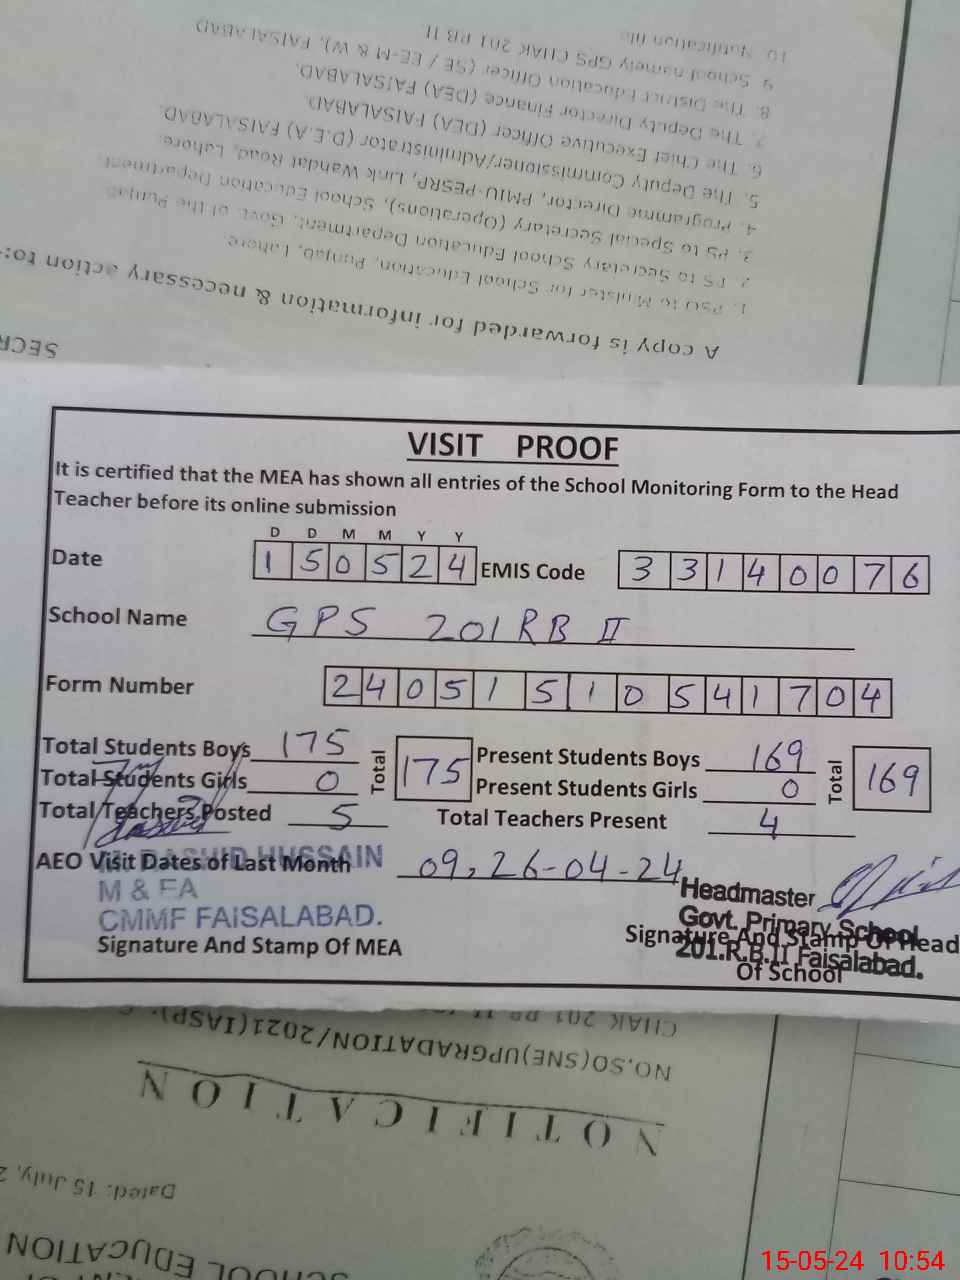 10. Notification file
9. School namely GPS CHAK 201 RB II.
8. The District Education Officer (SE / EE-M & W), FAISALABAD
7. The Deputy Director Finance (DEA) FAISALABAD.
6. The Chief Executive Officer (DEA) FAISALABAD.
5. The Deputy Commissioner/Administrator (D.E.A) FAISALABAD.
4. Programme Director, PMIU-PESRP, Link Wahdat Road, Lahore.
3. PS to Special Secretary (Operations), School Education Department
2. PS to Secretary School Education Department, Govt. of the Punjab
1. PSO to Minister for School Education, Punjab, Lahore.
A copy is forwarded for information & necessary action to:-
VISIT PROOF
It is certified that the MEA has shown all entries of the School Monitoring Form to the Head
Teacher before its online submission
D D M M Y Y
Date 150524 EMIS Code 33140076
School Name GPS 201 RB II
Form Number 24051510541704
Total Students Boys 175 Total 175 Present Students Boys 169 Total 169
Total Students Girls 0 Present Students Girls 0
Total Teachers Posted 5 Total Teachers Present 4
AEO Visit Dates of Last Month 09, 26-04-24
RASHID HUSSAIN
M & EA
CMMF FAISALABAD.
Signature And Stamp Of MEA
Headmaster
Govt. Primary School
201.R.B.II Faisalabad.
Signature And Stamp Of Head
Of School
CHAK 201 RB II
NO.SO(SNE)UPGRADATION/2021(IASP).
NOTIFICATION
Dated: 15 July, 2
EDUCATION
15-05-24 10:54